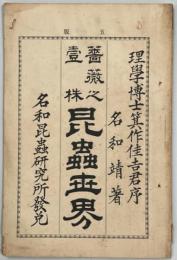 五版
理學博士箕作佳吉君序
名和靖著
薔薇之壹株昆蟲世界
名和昆蟲研究所發兌